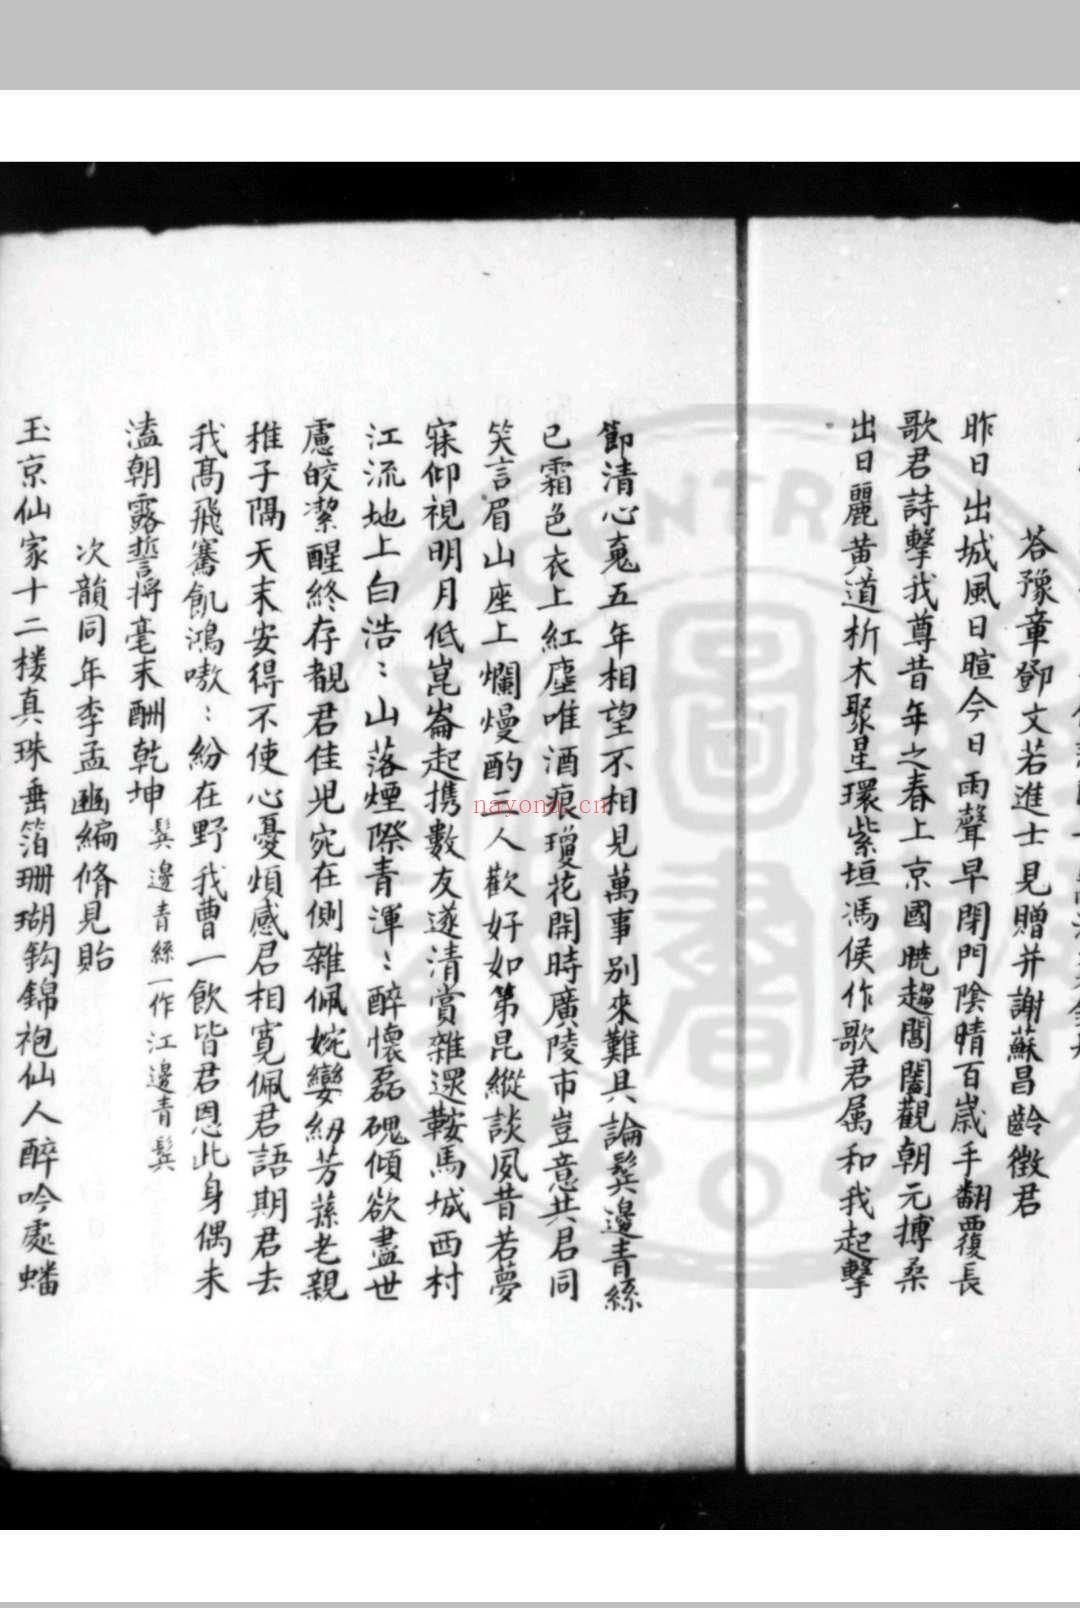 荅豫章鄧文若進士見贈并謝蘇昌齡徵君
昨日出城風日暄今日雨聲早閉門陰晴百歲手翻覆長
歌君詩擊我尊昔年之春上京國曉趨閶闔觀朝元搏桑
出日麗黃道析木聚星環紫垣馮侯作歌君屬和我起擊
節清心䰟五年相望不相見萬事別來難具論鬂邊青絲
已霜色衣上紅塵唯酒痕瓊花開時廣陵市豈意共君同
笑言眉山座上爛熳酌三人歡好如第昆縱談夙昔若夢
寐仰視明月低崑崙起携數友遂清賞雜還鞍馬城西村
江流地上白浩〻山落煙際青渾〻醉懷磊磈傾欲盡世
慮皎潔醒終存覩君佳児宛在側雜佩婉孌紉芳蓀老親
稚子隔天末安得不使心憂煩感君相寬佩君語期君去
我高飛騫飢鴻嗷〻紛在野我曹一飲皆君恩此身偶未
溘朝露誓將毫末酬乾坤 鬂邊青絲一作江邊青鬂
次韻同年李孟豳編脩見貽
玉京仙家十二楼真珠垂箔珊瑚鈎錦袍仙人醉吟處蟠
CENTRA
nayona.cn